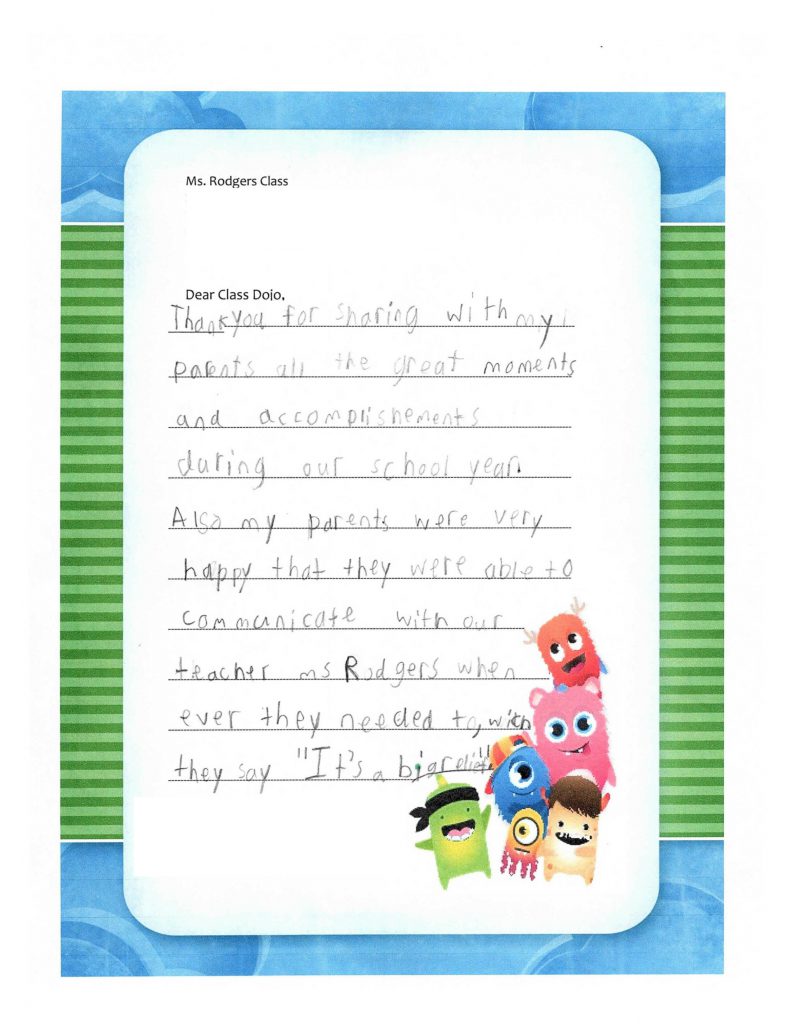 Ms. Rodgers Class
Dear Class Dojo,
Thankyou for sharing with my
parents all the great moments
and accomplishements
during our school year.
Also my parents were very
happy that they were able to
communicate with our
teacher ms Rodgers when
ever they needed to, with
they say "It's a big relief"